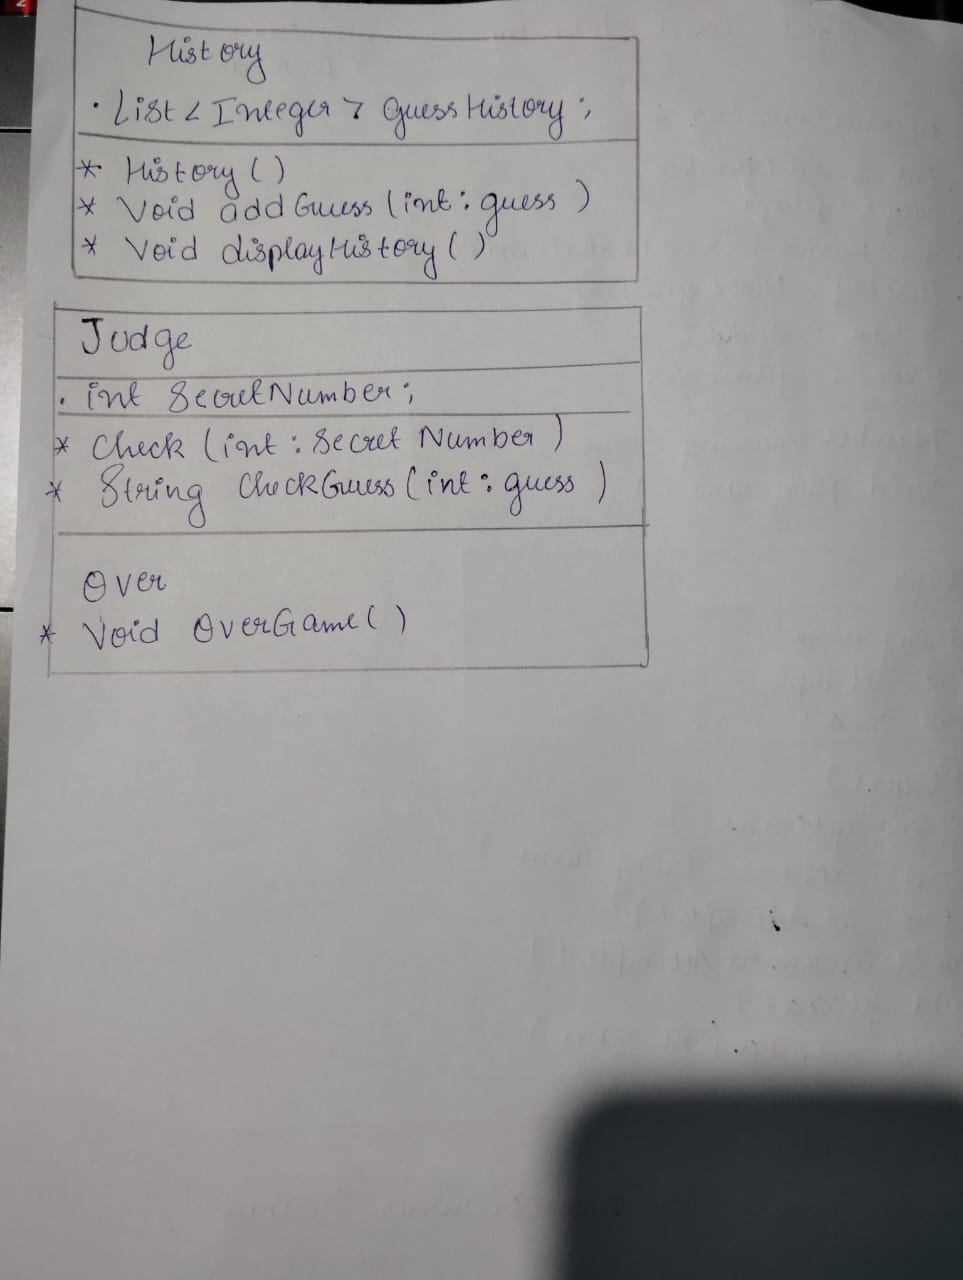 History
. List < Integer > guessHistory ;
* History ( )
* Void addGuess ( int : guess )
* Void displayHistory ( )
Judge
. int SecretNumber ;
* Check ( int : Secret Number )
* String CheckGuess ( int : guess )
Over
* Void OverGame ( )